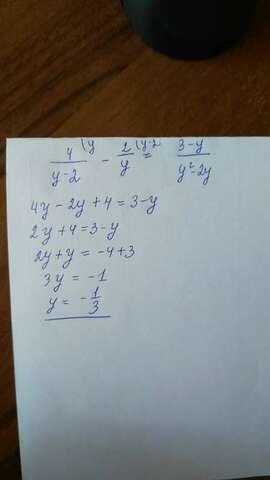 4/(y-2) (y - 2/y (y-2 = (3-y)/(y²-2y)
4y-2y+4=3-y
2y+4=3-y
2y+y=-4+3
3y=-1
y=-1/3